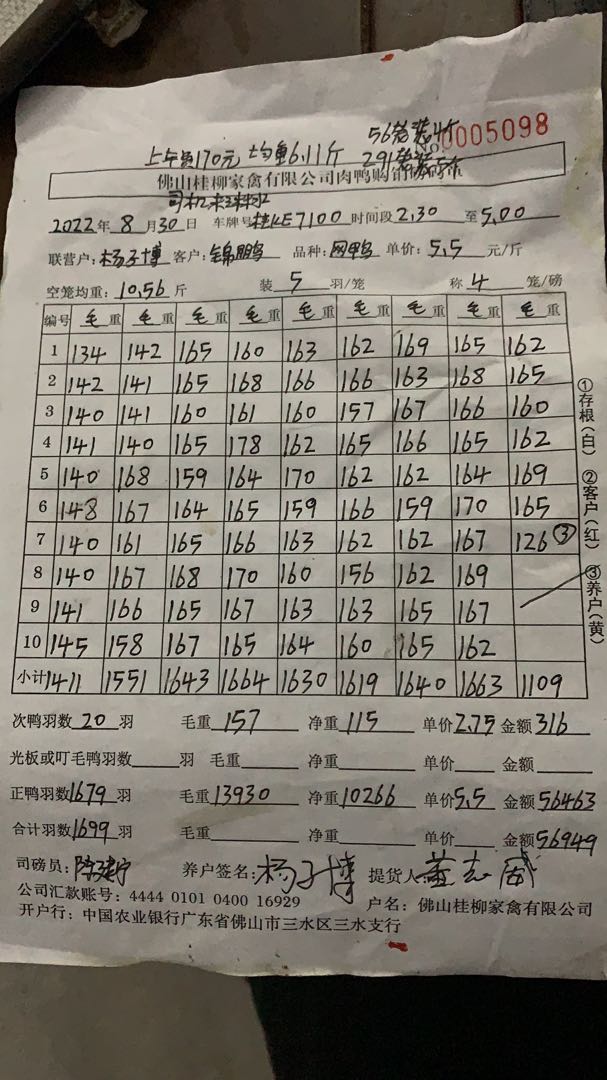 上车费170元 均重6.11斤
56笼装4个
291笼装5个
No 0005098
佛山桂柳家禽有限公司肉鸭购销
2022年8月30日 车牌号桂KE7100 时间段2.30至5.00
联营户:杨子博 客户:锦鹏 品种:网鸭 单价:5.5元/斤
空笼均重:10.56斤 装5羽/笼 称4笼/磅
编号 毛重 毛重 毛重 毛重 毛重 毛重 毛重 毛重 毛重
1 134 142 165 160 163 162 169 165 162
2 142 141 165 168 166 166 163 168 165
3 140 141 160 161 160 157 167 166 160
4 141 140 165 178 162 165 166 165 162
5 140 168 159 164 170 162 162 164 169
6 148 167 164 165 159 166 159 170 165
7 140 161 165 166 163 162 162 167 126③
8 140 167 168 170 160 156 162 169
9 141 166 165 167 163 163 165 167
10 145 158 167 165 164 160 165 162
小计 1411 1551 1643 1664 1630 1619 1640 1663 1109
①存根(白) ②客户(红) ③养户(黄)
次鸭羽数20羽 毛重157 净重115 单价2.75 金额316
光板或叮毛鸭羽数 羽 毛重 净重 单价 金额
正鸭羽数1679羽 毛重13930 净重10266 单价5.5 金额56463
合计羽数1699羽 毛重 净重 单价 金额56949
司磅员: 养户签名:杨子博 提货人:
公司汇款账号:4444 0101 0400 16929 户名:佛山桂柳家禽有限公司
开户行:中国农业银行广东省佛山市三水区三水支行